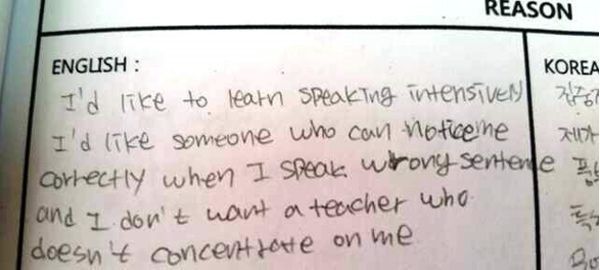 REASON
ENGLISH :
I'd like to learn speaking intensively
I'd like someone who can notice me
correctly when I speak wrong sentence
and I don't want a teacher who
doesn't concentrate on me
KOREA
제가